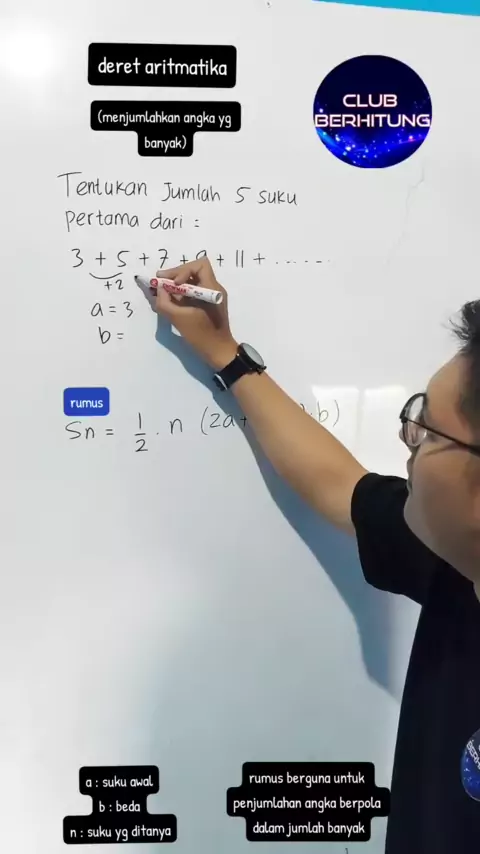 deret aritmatika
(menjumlahkan angka yg
banyak)
CLUB
BERHITUNG
Tentukan Jumlah 5 suku
pertama dari :
3 + 5 + 7 + 9 + 11 + ......
+2
a = 3
b =
rumus
Sn = 1/2 . n (2a+ b)
a : suku awal
b : beda
n : suku yg ditanya
rumus berguna untuk
penjumlahan angka berpola
dalam jumlah banyak